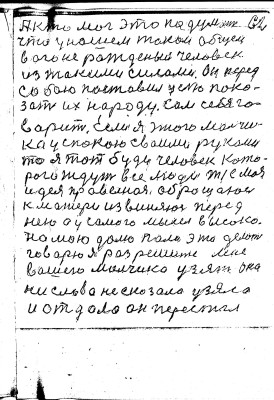 А кто мог это подумат 62
что у нашем такой общем
вагоне рожденый человек
из такими силами. Он перед
собою поставил цель пока-
зат их народу. Сам себе го-
варит, Если я этого мальчи-
ка успокою своими руками
то я тот буди человек кото-
рого ждут все люди т/е моя
идея правельная, обращаюс
к матери извиняюс перед
нею а у самого мысел высоко.
На мою долю пало это делат
говарю я разрешите мне
вашего малчика узят она
ни слова не сказала узяла
и отдала он перестал